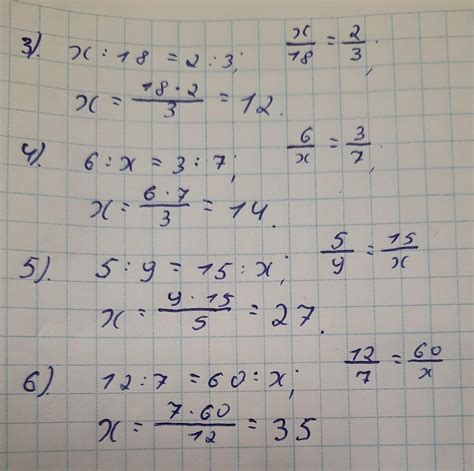 3). x : 18 = 2 : 3; x/18 = 2/3;
x = 18·2/3 = 12.
4). 6 : x = 3 : 7; 6/x = 3/7;
x = 6·7/3 = 14.
5). 5 : 9 = 15 : x; 5/9 = 15/x
x = 9·15/5 = 27.
6). 12 : 7 = 60 : x; 12/7 = 60/x
x = 7·60/12 = 35